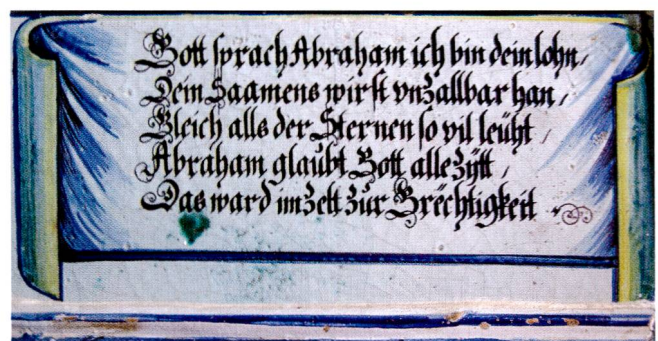 Gott sprach Abraham ich bin dein lohn /
Dein Saamens wirst vnzallbar han /
Gleich alls der Sternen so vil leüht /
Abraham glaubt Gott alle zÿtt /
Das ward im zelt zur Grëchtigkeit